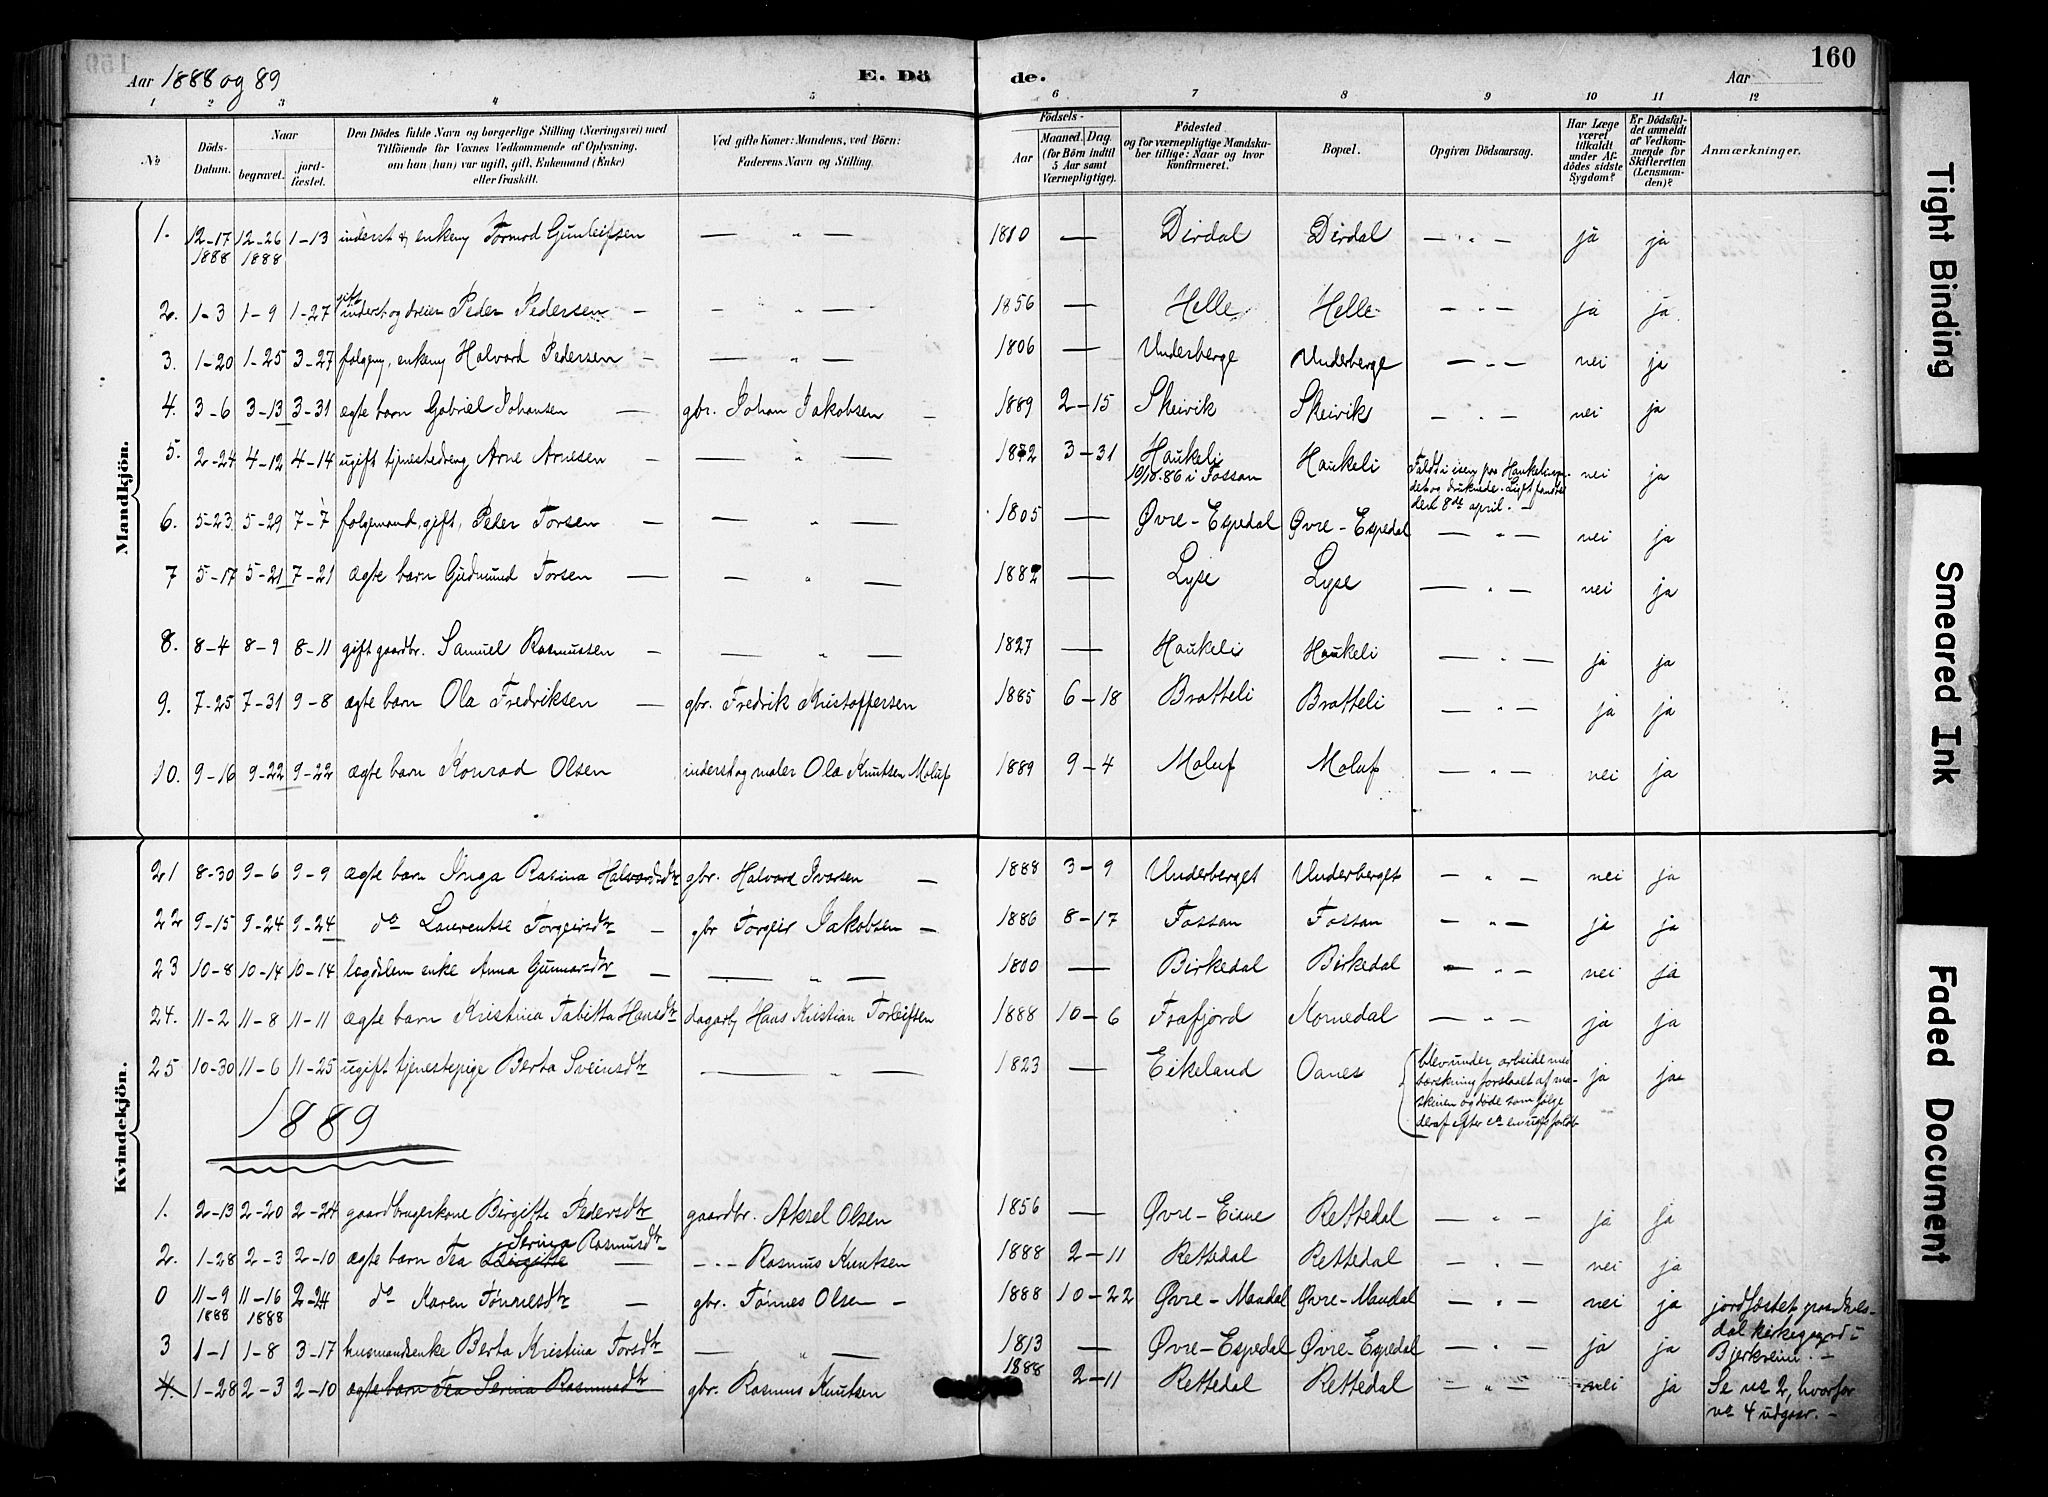 Aar 1888 og 89 E. Döde. Aar 160
1 2 3 4 5 6 7 8 9 10 11 12
No
Döds-Datum.
Naar
begravet.
jord-fæstet.
Den Dödes fulde Navn og borgerlige Stilling (Næringsvei) med
Tilföiende for Voxnes Vedkommende af Oplysning,
om han (hun) var ugift, gift, Enkemand (Enke)
eller fraskilt.
Ved gifte Koner: Mandens, ved Börn:
Faderens Navn og Stilling.
Födsels-
Aar
Maaned. Dag.
(for Börn indtil
5 Aar samt
Værnepligtige).
Födested
og for værnepligtige Mandska-
ber tillige: Naar og hvor
konfirmeret.
Bopæl.
Opgiven Dödsaarsag.
Har Læge
været
tilkaldt
under Af-
dödes sidste
Sygdom?
Er Dödsfal-
det anmeldt
af Vedkom-
mende for
Skifteretten
(Lensman-
den)?
Anmærkninger.
Mandkjön.
1. 12-17 1888 12-26 1888 1-13 inderst & enkem Tormod Gunleifsen — „ — 1810 — Dirdal Dirdal — „ — ja ja
2. 1-3 1-9 1-27 gift inderst og dreier Peder Pedersen — - „ — 1856 — Helle Helle — „ — ja ja
3. 1-20 1-25 3-27 folgem, enkem Halvard Pedersen — — „ — 1806 — Underberge Underberge — „ — nei ja
4. 3-6 3-13 3-31 ægte barn Gabriel Johansen — gbr. Johan Jakobsen — 1889 2-15 Skeivik Skeivik — „ — nei ja
5. 2-24 4-12 4-14 ugift tjenestedreng Arne Arnesen — — „ — 1872 3-31 Haukeli 10/10.86 i Fossan Haukeli Faldt i isen paa Haukelivan-
det og druknede. Liget fandtes
den 8de april. — nei ja
6. 5-23 5-29 7-7 folgemand, gift, Peder Torsen — — „ — 1805 — Øvre-Espedal Øvre-Espedal — „ — nei ja
7 5-17 5-21 7-21 ægte barn Gudmund Torsen — — „ — 1882 — Lyse Lyse — „ — nei ja
8. 8-4 8-9 8-11 gift gaardbr. Samuel Rasmussen — — „ — 1827 — Haukeli Haukeli — „ — ja ja
9. 7-25 7-31 9-8 ægte barn Ola Fredriksen — gbr. Fredrik Kristoffersen 1885 6-18 Bratteli Bratteli — „ — ja ja
10. 9-16 9-22 9-22 ægte barn Konrad Olsen inderst og maler Ola Knutsen Moluf 1889 9-4 Moluf Moluf — „ — nei ja
Kvindekjön.
21 8-30 9-6 9-9 ægte barn Inga Rasina Halvardsdtr gbr. Halvard Ivarsen — 1888 3-9 Underberget Underberget — „ — nei ja
22 9-15 9-24 9-24 do Laurentse Torgeirsdtr — gbr Torgeir Jakobsen — 1886 8-17 Fossan Fossan — „ — ja ja
23 10-8 10-14 10-14 lægdslem enke Anna Gunnarsdtr — — „ — 1800 — Birkedal Birkedal — „ — nei ja
24. 11-2 11-8 11-11 ægte barn Kristina Tabitta Hansdtr dagarb Hans Kristian Torleifsen 1888 10-6 Frafjord Kornedal — „ — ja ja
25 10-30 11-6 11-25 ugift tjenestepige Berta Sveinsdtr — „ — 1823 — Eikeland Oanes blev under arbeide med
tærskning forslaaet af ma-
skinen og døde som følge
deraf efter ca en ugs forløb ja ja
1889
1. 2-13 2-20 2-24 gaardbrugerkone Birgitte Pedersdtr gaardbr. Aksel Olsen 1856 — Øvre-Eiane Rettedal — „ — ja ja
2. 1-28 2-3 2-10 ægte barn Tea Birgitte Serina Rasmusdtr — -„- Rasmus Knutsen 1888 2-11 Rettedal Rettedal — „ — nei ja
0 11-9 1888 11-16 1888 2-24 do Karen Tønnesdtr — gbr. Tønnes Olsen — 1888 10-22 Øvre-Maudal Øvre-Maudal — „ — nei ja jordfæstet paa
dal kirkegaard i
Bjerkreim. —
3 1-1 1-8 3-17 husmandsenke Berta Kristina Torsdtr — „ — 1813 — Øvre-Espedal Øvre-Espedal — „ — ja ja
4. 1-28 2-3 2-10 ægte barn Tea Serina Rasmusdtr gbr. Rasmus Knutsen 1888 2-11 Rettedal Rettedal — „ — nei ja Se no 2, hvorfor
no 4 udgaar. —
Tight Binding
Smeared Ink
Faded Document